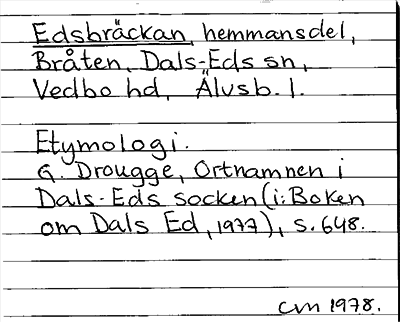 Edsbräckan, hemmansdel,
Bråten, Dals-Eds sn,
Vedbo hd, Älvsb. l.
Etymologi.
G. Drougge, Ortnamnen i
Dals-Eds socken (i: Boken
om Dals Ed, 1977), s. 648.
cm 1978.